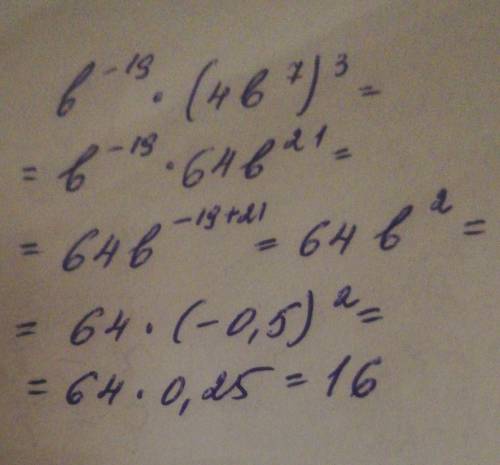 b⁻¹⁹ · (4b⁷)³ =
= b⁻¹⁹ · 64b²¹ =
= 64b⁻¹⁹⁺²¹ = 64b² =
= 64 · (-0,5)² =
= 64 · 0,25 = 16